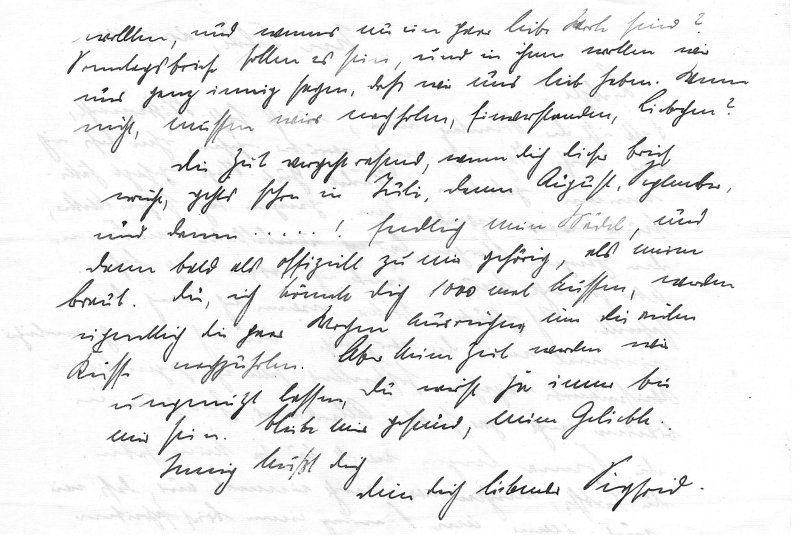 wollten, und wenns nur ein paar liebe Worte sind?
Sonntagsbriefe sollen es sein, und in ihnen wollen wir
uns ganz innig sagen, daß wir uns lieb haben. Wenn
nicht, müssen wirs nachholen, Einverstanden, Liebchen?
Die Zeit vergeht rasend, wenn dich dieser Brief
erreicht, gehts schon in Juli, dann August, September,
und dann.....! Endlich mein Mädel, und
dann bald als offiziell zu mir gehörig, als meine
Braut. Du, ich könnte dich 1000 mal küssen, werden
eigentlich die paar Wochen ausreichen um die vielen
Küsse nachzuholen. Aber keine Zeit werden wir
ungenutzt lassen, Du wirst ja immer bei
mir sein. Bleibe mir gesund, meine Geliebte.
Innig küßt dich
dein dich liebender Siegfried.